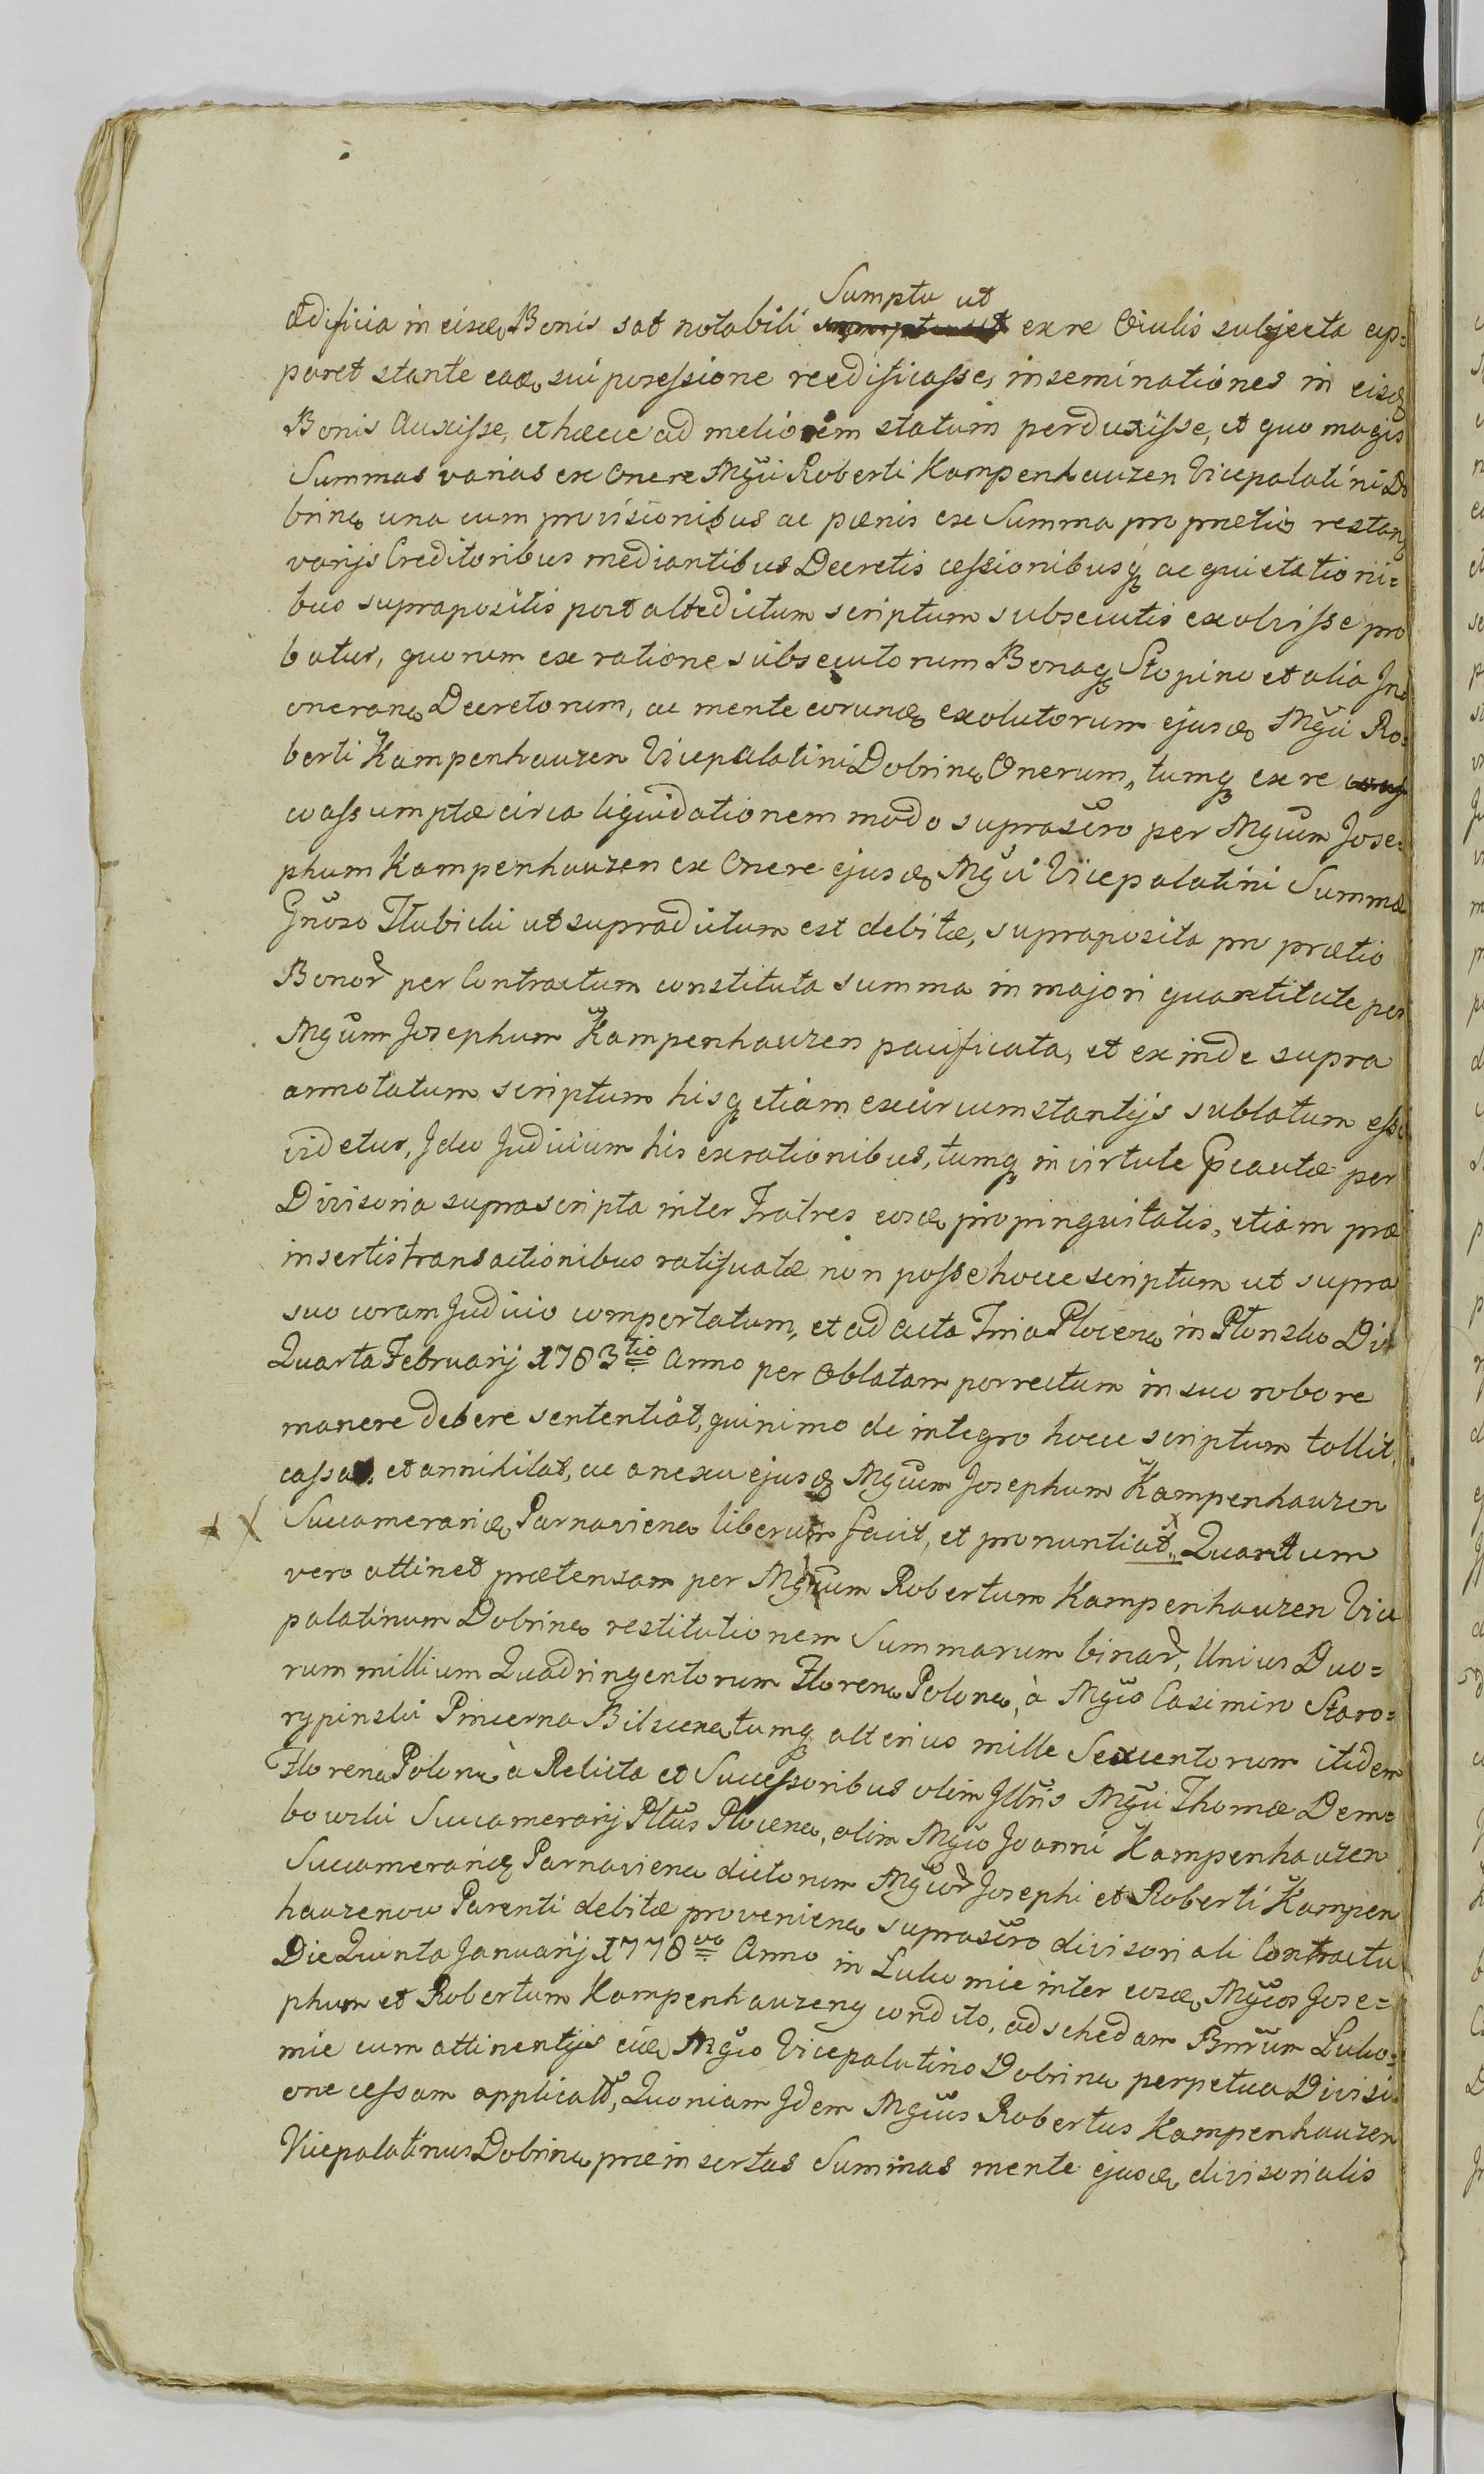 Sumptu ut
ædificia in eisd Bonis sat notabili ex re Oculis subjecta ap=
paret stante ead sui possessione reedificasse, inseminationes in eisd
Bonis Auxisse, et hæcce ad meliorem statum perduxisse, et quo magis
Summas varias ex Onere Mgci Roberti Kampenhauzen Vicepalatini Do
brinen una cum provisionibus ac pœnis ex Summa pro prætio restan
varijs Creditoribus mediantibus Decretis cessionibusq ac quietationi=
bus suprapositis post altedictum scriptum subsecutis exolvisse pro
batur, quorum ex ratione subsecutorum Bonaq Stopino et alia Ino
oneran Decretorum, ac mente eorund exolutorum ejusd Mgci Ro=
berti Kampenhauzen Vicepalatini Dobrinen Onerum, tumq ex re
coassumptæ circa liquidationem modo suprascro per Mgcum Jose=
phum Kampenhauzen ex Onere ejusd Mgci Vicepalatini Summæ
Gnoso Hubicki ut supradictum est debitæ, supraposita pro prætio
Bonor per Contractum constituta summa in majori quantitate per
Mgcum Josephum Kampenhauzen pacificata, et exinde supra
annotatum scriptum hisq etiam ex circumstantijs sublatum esse
videtur, Ideo Judicium his ex rationibus, tumq in virtute Pcautæ per
Divisoria suprascripta inter Fratres eosd propinquitatis, etiam præ
insertis transactionibus ratificatæ non posse hocce scriptum ut supra
suo coram Judicio comportatum, et ad acta Tria Plocen in Płonsko Die
Quarta Februarij 1783tio Anno per Oblatam porrectum in suo robore
manere debere sententiat, quinimo de integro hocce scriptum tollit,
cassat et annihilat, ac a nexu ejusd Mgcum Josephum Kampenhauzen
Succamerarid Parnavien liberum facit, et pronuntiat. Quantum
vero attinet prætensam per Mgcum Robertum Kampenhauzen Vice
palatinum Dobrinen restitutionem Summarum binar, Unius Duo=
rum millium Quadringentorum Floren Polon, à Mgco Casimiro Staro=
rypinski Pincerna Bilscen tumq alterius mille Sexcentorum itidem
Floren Polon à Relicta et Successoribus olim Illris Mgci Thomæ Dem=
bowski Succamerarij Pltus Plocen, olim Mgco Joanni Kampenhauzen
Succamerarid Parnavien dictorum Mgcor Josephi et Roberti Kampen
hauzenow Parenti debitæ provenien suprascro divisoriali Contractu
Die Quinta Januarij 1778vo Anno in Lukomie inter eosd Mgcos Jose=
phum et Robertum Kampenhauzeny condito, ad schedam Bnrum Luko=
mie cum attinentijs eid Mgco Vicepalatino Dobrinen perpetua Divisi=
one cessam applicatr, Quoniam Idem Mgcus Robertus Kampenhauzen
Vicepalatinus Dobrinen præinsertas Summas mente ejusd divisorialis